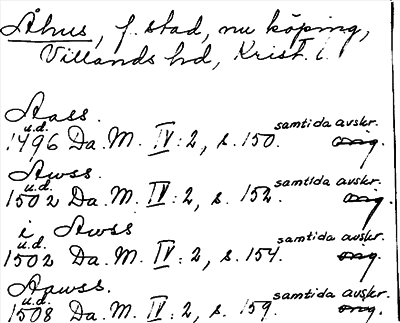 Åhus, f. stad, nu köping,
Villands hd, Krist. l.
Aass.
u.d. samtida avskr.
1496 Da. M. IV: 2, s. 150. orig.
Awss.
u.d. samtida avskr.
1502 Da. M. IV: 2, s. 152. orig.
i Awss
u.d. samtida avskr.
1502 Da. M. IV: 2, s. 154. orig.
Aawss.
u.d. samtida avskr.
1508 Da. M. IV: 2, s. 159. orig.